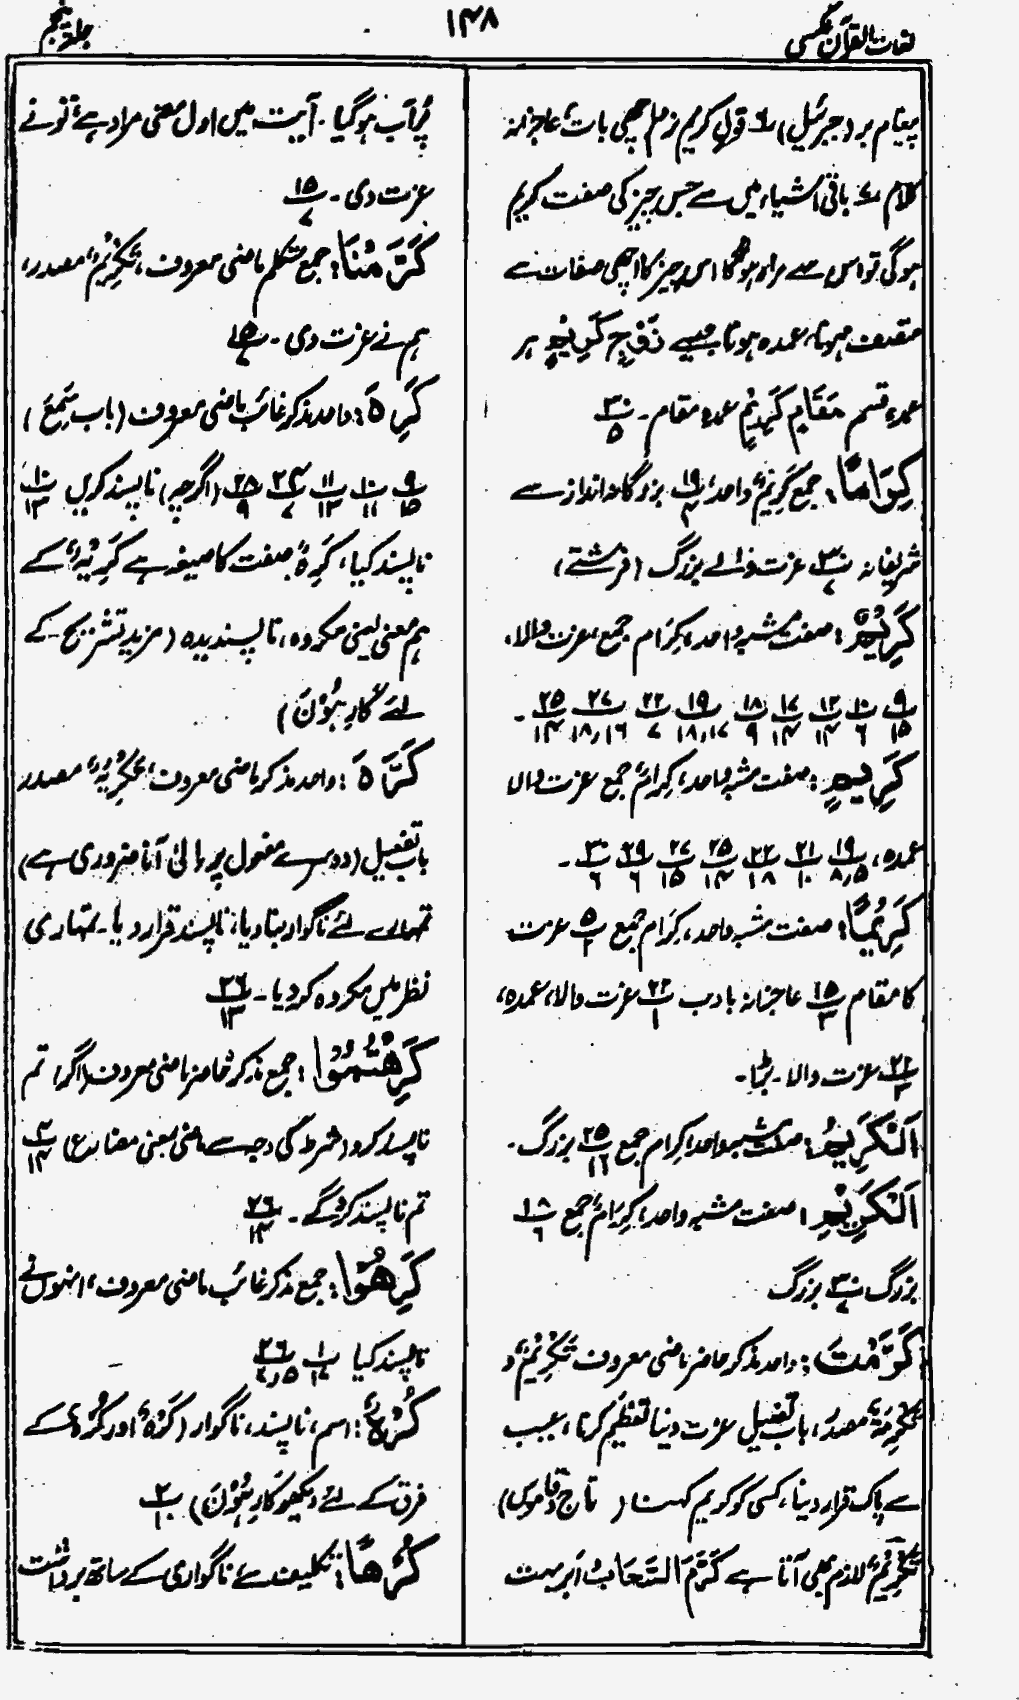 لغات القرآن عکسی
۱۴۸
جلد پنجم
پیغام بر (جبرئیل) ۶ قول کریم نرم اچھی بات، عاجزانہ
کلام ۷ باقی اشیاء میں سے جس چیز کی صفت کریم
ہوگی تو اس سے مراد ہوگا اس چیز کا اچھی صفات سے
متصف ہونا، عمدہ ہونا جیسے زَوْجٍ کَرِیْمٍ ہر
عمدہ قسم مَقَامٍ کَرِیْمٍ عمدہ مقام۔ ۳۰/۵
کِرَامًا: جمع کَرِیْمٌ واحد، ۱۹/۴ بزرگانہ انداز سے
شریفانہ ۳۰/۷ عزت والے بزرگ (فرشتے)
کَرِیْمٌ: صفت مشبہ واحد، کِرَام جمع، عزت والا،
۹/۱۵ ۱۰/۶ ۱۲/۱۴ ۱۷/۱۴ ۱۸/۹ ۱۹/۱۸،۱۷ ۲۲/۷ ۲۷/۱۸،۱۶ ۲۵/۱۴۔
کَرِیْمٍ: صفت مشبہ واحد، کِرَامٌ جمع عزت والا
عمدہ، ۱۹/۸،۵ ۲۱/۱۰ ۲۲/۱۸ ۲۵/۱۴ ۲۷/۱۵ ۲۹/۶ ۳۰/۶۔
کَرِیْمًا: صفت مشبہ واحد، کِرَام جمع ۵/۲ عزت
کا مقام ۱۵/۳ عاجزانہ با ادب ۲۲/۱ عزت والا، عمدہ،
۲۲/۳ عزت والا۔ بڑا۔
اَلْکَرِیْمُ: صفت مشبہ واحد، کِرام جمع ۲۵/۱۶ بزرگ۔
اَلْکَرِیْمِ: صفت مشبہ واحد، کِرَامٌ جمع ۱۸/۶
بزرگ ۳۰/۷ بزرگ
کَرَّمْتَ: واحد مذکر حاضر ماضی معروف تَکْرِیْمٌ و
تَکْرِمَۃٌ مصدر، باب تفعیل عزت دینا تعظیم کرنا، عیب
سے پاک قرار دینا، کسی کو کریم کہنا (تاج و قاموس)
تَکْرِیْمٌ لازم بھی آتا ہے کَرَّمَ السَّحَابُ ابر بہت
پُر آب ہوگیا۔ آیت میں اول معنی مراد ہے، تو نے
عزت دی۔ ۱۵/۷
کَرَّمْنَا: جمع متکلم ماضی معروف، تَکْرِیْمٌ مصدر،
ہم نے عزت دی۔ ۱۵/۷
کَرِہَ: واحد مذکر غائب ماضی معروف (باب سَمِعَ)
۹/۱۵ ۱۰/۱۱ ۱۱/۱۳ ۲۴/۷ ۲۵/۹ (اگرچہ) ناپسند کریں ۱۰/۱۳
ناپسند کیا، کَرِہٌ صفت کا صیغہ ہے کَرِیْہٌ کے
ہم معنی یعنی مکروہ، ناپسندیدہ (مزید تشریح کے
لئے کَارِہُوْنَ)
کَرَّہَ: واحد مذکر ماضی معروف، تَکْرِیْہٌ مصدر
باب تفعیل (دوسرے مفعول پر الیٰ آنا ضروری ہے)
تمہارے لئے ناگوار بنا دیا، ناپسند قرار دیا۔ تمہاری
نظر میں مکروہ کر دیا۔ ۲۶/۱۳
کَرِہْتُمُوْا: جمع مذکر حاضر ماضی معروف (اگر) تم
ناپسند کرو (شرط کی وجہ سے ماضی بمعنی مضارع) ۴/۱۴
تم ناپسند کروگے۔ ۲۶/۱۴
کَرِہُوْا: جمع مذکر غائب ماضی معروف، انہوں نے
ناپسند کیا ۱۰/۱۷ ۲۶/۷،۵
کُرْہٌ: اسم، ناپسند، ناگوار (کَرْہٌ اور کُرْہٌ کے
فرق کے لئے دیکھو کَارِہُوْنَ) ۲/۱۰
کُرْہًا: تکلیف سے ناگواری کے ساتھ برداشت